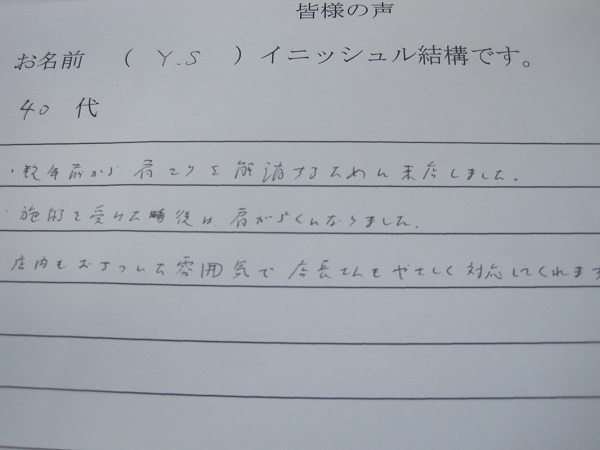 皆様の声
お名前 ( Y.S ) イニッシュル結構です。
40 代
・数年前から肩コリを解消するために来店しました。
・施術を受けた時後は、肩がらくになりました。
店内もおちついた雰囲気で店長さんもやさしく対応してくれます